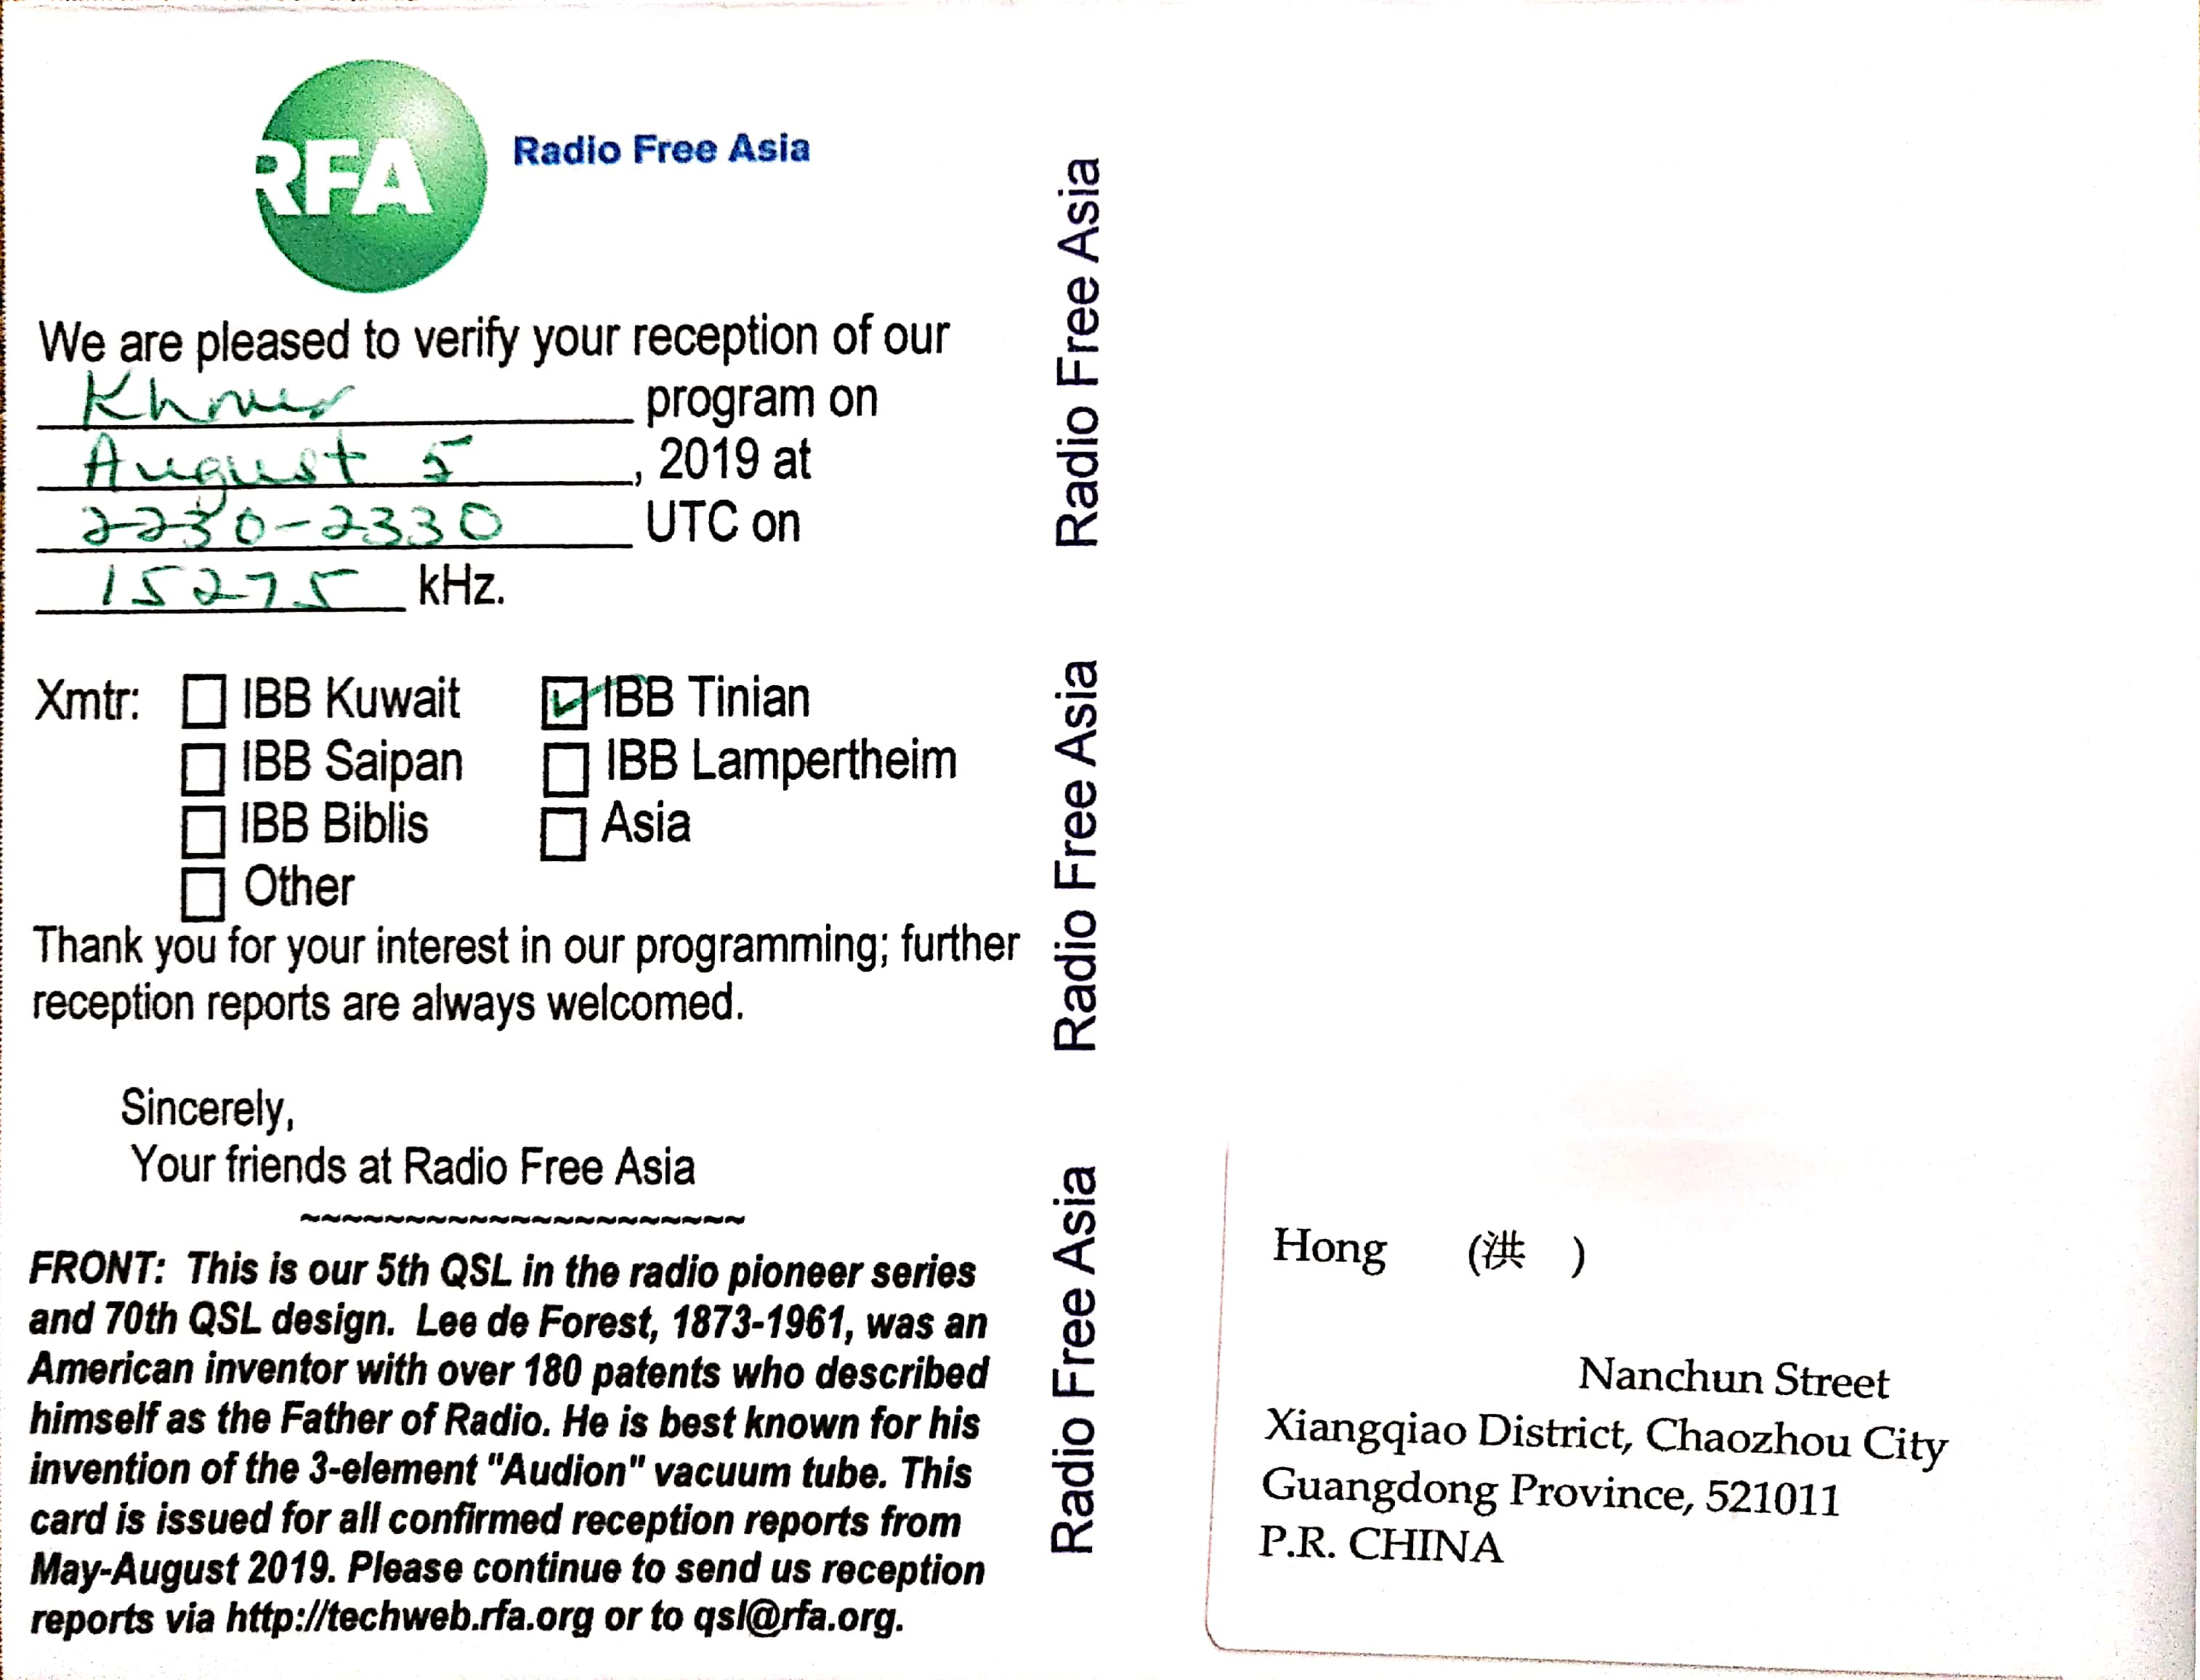 RFA
Radio Free Asia
We are pleased to verify your reception of our
Khmer program on
August 5, 2019 at
2230-2330 UTC on
15275 kHz.
Xmtr: IBB Kuwait IBB Tinian
IBB Saipan IBB Lampertheim
IBB Biblis Asia
Other
Thank you for your interest in our programming; further
reception reports are always welcomed.
Sincerely,
Your friends at Radio Free Asia
~~~~~~~~~~~~~~~~~~~~~
FRONT: This is our 5th QSL in the radio pioneer series
and 70th QSL design. Lee de Forest, 1873-1961, was an
American inventor with over 180 patents who described
himself as the Father of Radio. He is best known for his
invention of the 3-element "Audion" vacuum tube. This
card is issued for all confirmed reception reports from
May-August 2019. Please continue to send us reception
reports via http://techweb.rfa.org or to qsl@rfa.org.
Radio Free Asia Radio Free Asia Radio Free Asia
Hong (洪 )
Nanchun Street
Xiangqiao District, Chaozhou City
Guangdong Province, 521011
P.R. CHINA